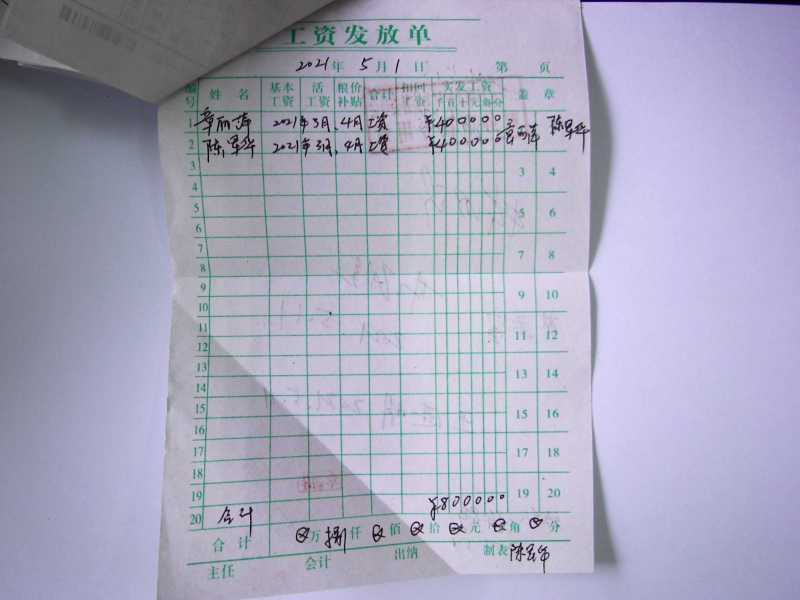 工资发放单
2021年5月1日 第 页
编号 姓名 基本工资 活工资 粮价补贴 合计 扣回工资 实发工资 千百十元角分 盖章
1 章丽萍 2021年3月、4月工资 ¥400000 章丽萍 陈星华
2 陈星华 2021年3月、4月工资 ¥400000
3 3 4
4
5 5 6
6
7 7 8
8
9 9 10
10
11 11 12
12
13 13 14
14
15 15 16
16
17 17 18
18
19 19 20
20 合计 ¥800000
合计 ⊗万捌仟⊗佰⊗拾⊗元⊗角⊗分
主任 会计 出纳 制表 陈星华